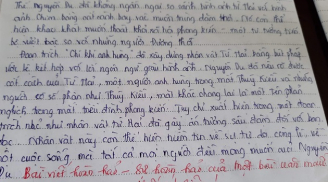 Thơ Nguyễn Du đã không ngần ngại so sánh hình ảnh Từ Hải với hình
ảnh Chim bằng cất cánh bay cao muôn trùng dặm khơi. Để còn thể
hiện khao khát muốn thoát khỏi xã hội phong kiến - một tư tưởng tiến
bộ vượt bậc so với những người đương thời
Đoạn trích "Chí khí anh hùng" đã xây dựng nhân vật Từ Hải bằng bút pháp
ước lệ kết hợp với lời ngôn ngữ giàu hình ảnh. Nguyễn Du đã nêu rõ được
cốt cách của Từ Hải, một người anh hùng trong mắt Thúy Kiều và những
người có số phận như Thúy Kiều, mặt khác chống lại là một tên phản
nghịch trong mắt triều đình phong kiến. Tuy chỉ xuất hiện trong một đoạn
trích nhỏ như nhân vật Từ Hải đã gây ấn tượng sâu đậm đối với bạn
đọc. Nhân vật này còn thể hiện niềm tin về sự tự do, công lí, về
một cuộc sống mới tất cả mọi người đều mong muốn của Nguyễn
Du Bài viết hoàn hảo - Sự hoàn hảo của một bài văn mẫu